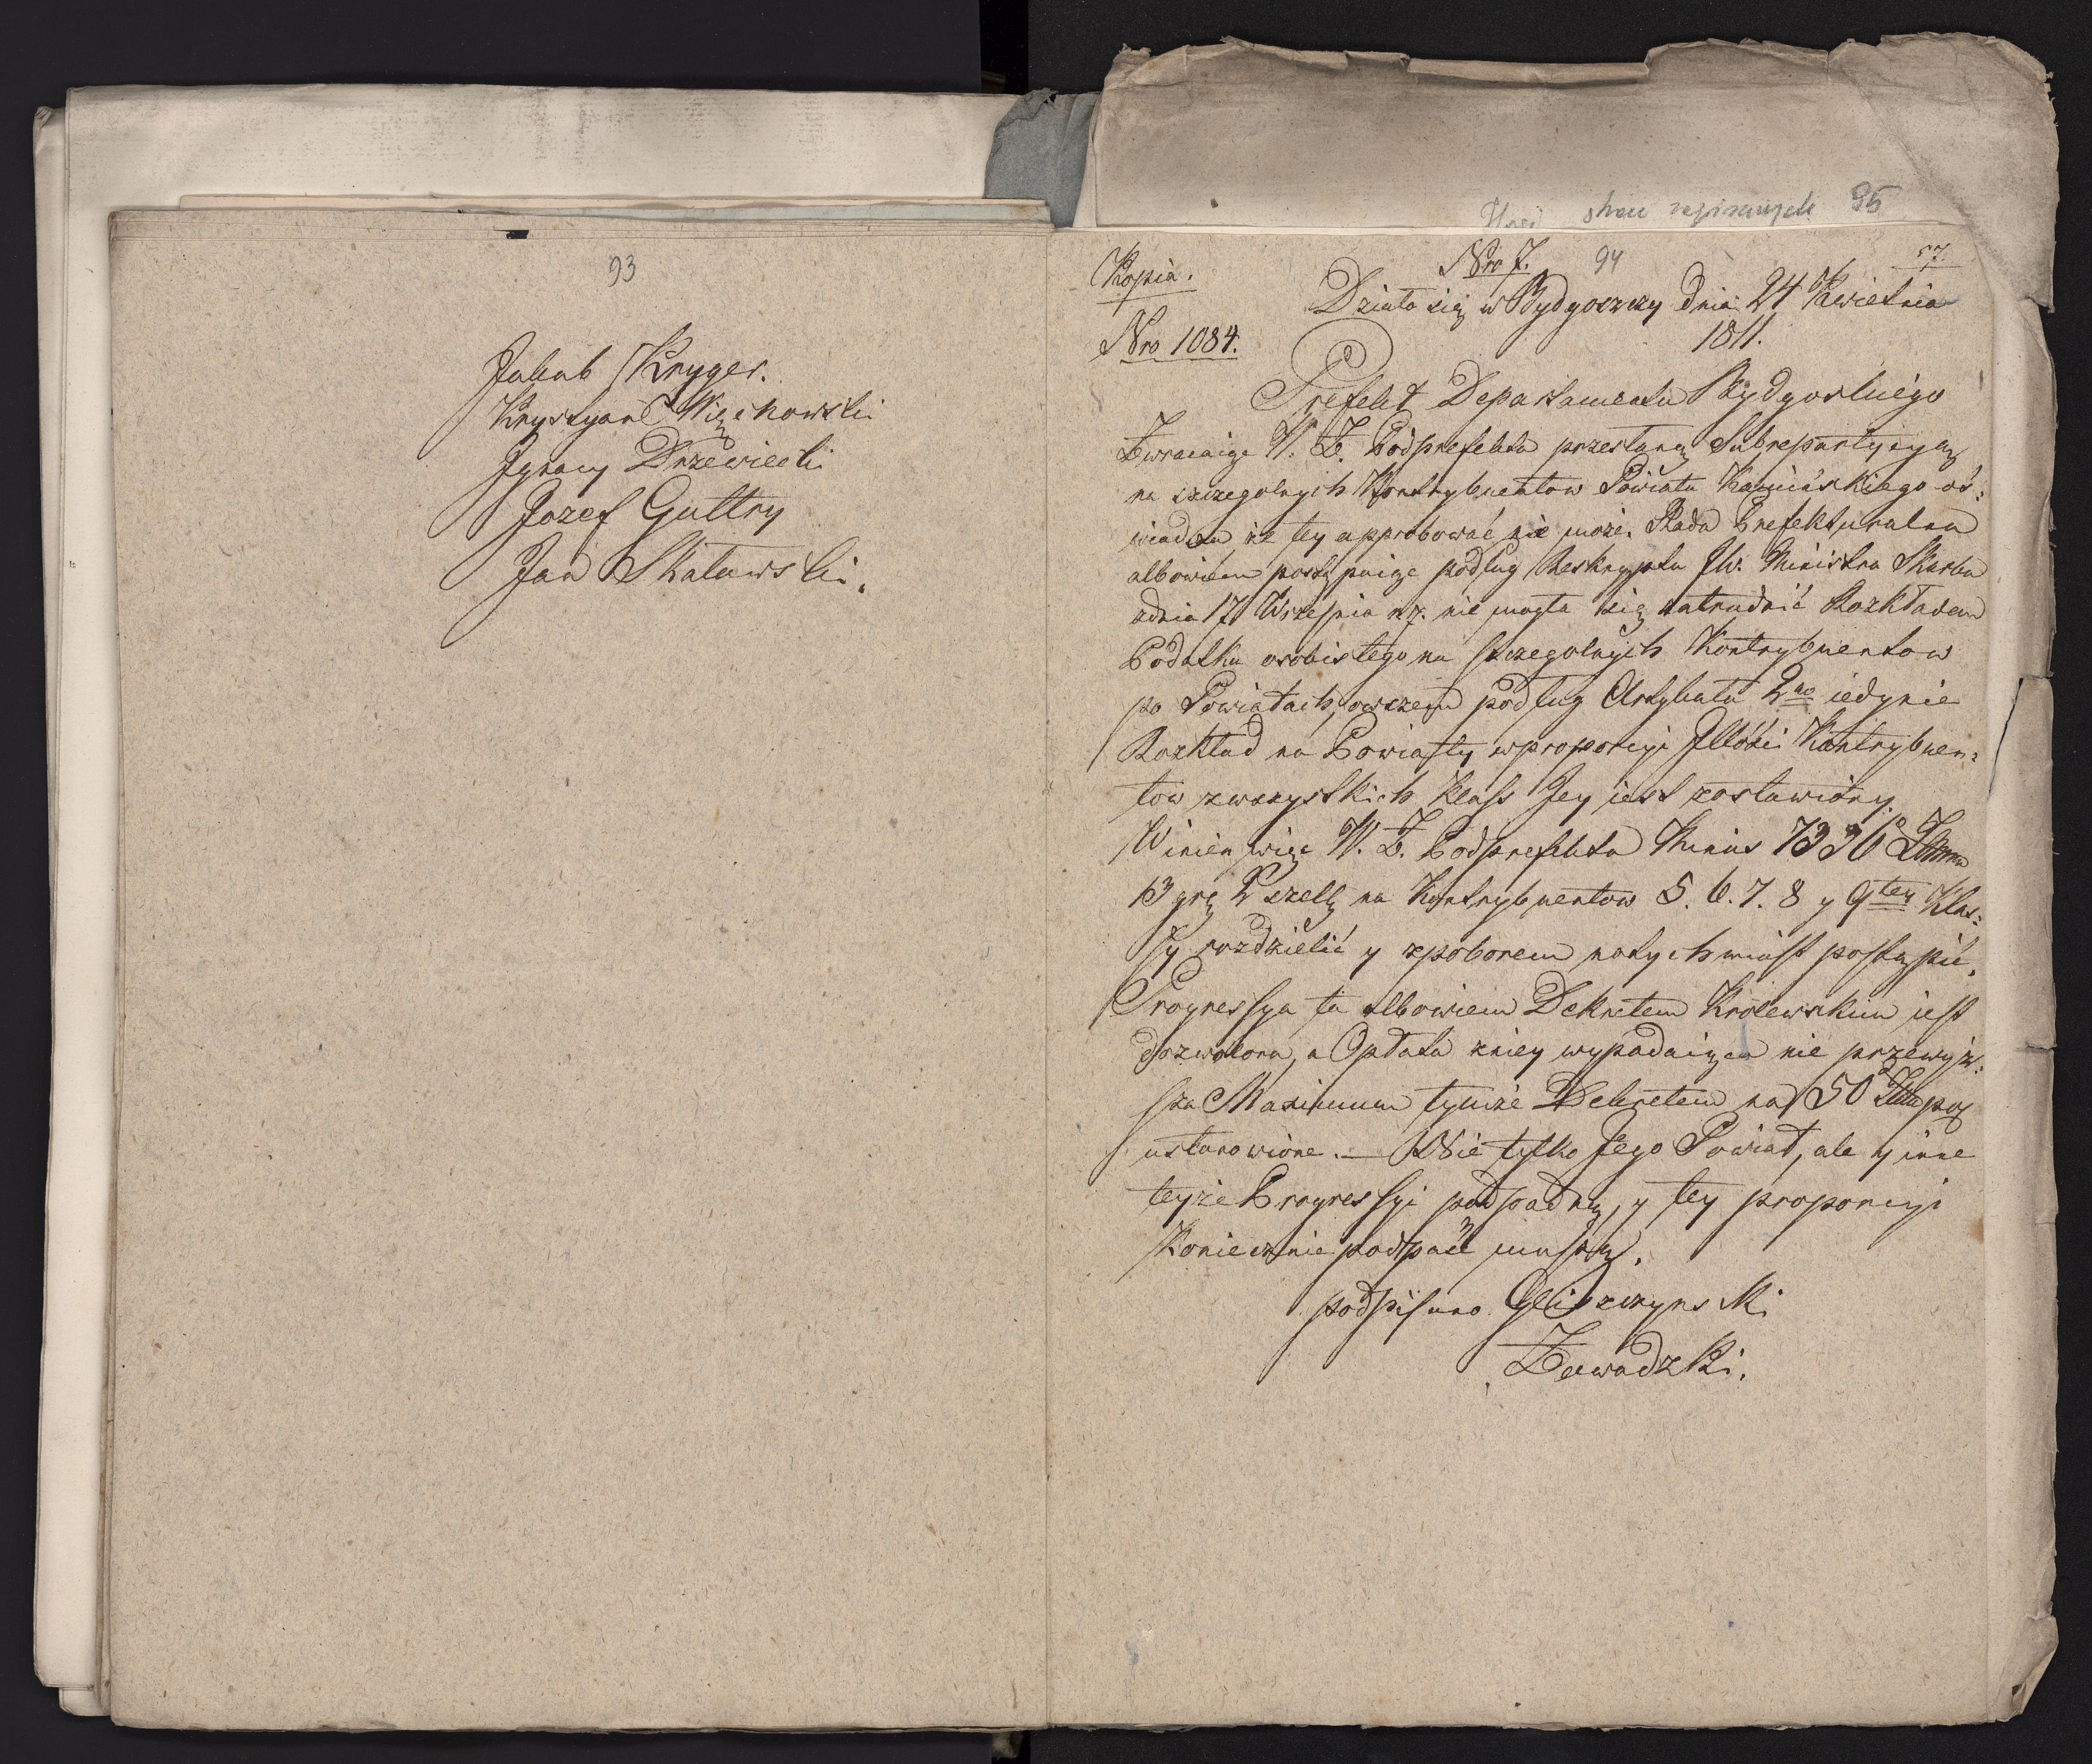 93
Jakub Kryger.
Krystyan Więckowski
Jgnacy Drzewiecki
Jozef Guttry
Jan Skaławski.
stron zapisanych 95
Kopia.
Nro 7.
94
57.
Działo się w Bydgoszczy dnia 24 Kwietnia
Nro 1084.
1811.
Prefekt Departamentu Bydgoskiego
Zwracaiąc W. Z. Podprefekta przesłaną Subrepartycyą
na szczegolnych Kontrybuentow Powiatu Kamińskiego oś:
wiadcza że tey approbować nie może. Rada Prefekturalna
albowiem postępuiąc podług Reskryptu JW. Ministra Skarbu
zdnia 17 Września r. z. nie mogła się zatrudnić Rozkładem
Podatku osobistego na szczegolnych Kontrybuentow
po Powiatach, owszem podług Artykułu 2go iedynie
Rozkład na Powiaty w proporcyi Jlłości Kontrybuen:
tow zwszystkich klass Jey iest zostawiony.
Winien więc W. Z. Podprefekta Minus 7336
13 grą 2 szelą na Kontrybuentow 5. 6. 7. 8 y 9tey Klas:
sy rozdzielić y zpoborem natychmiast postąpić.
Progressya ta albowiem Dekretem Krolewskim iest
dozwolona, a Opłata zniey wypadaiąca nie przewyż:
sza Maximum tymże Dekretem na 50
ustanowione. — Nie tylko Jego Powiat, ale y inne
teyże Progressyi podpadną, y tey proporcyi
Koniecznie podpaść muszą.
podpisano Gliszczynski
Zawadzki.